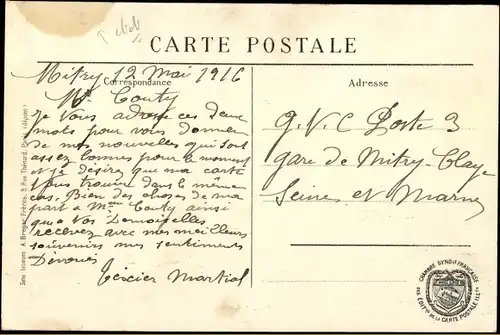 CARTE POSTALE
Correspondance
Adresse
Mitry 12 Mai 1916
Mr Couty
Je Vous adresse ces deux
mots pour vous donner
de mes nouvelles qui sont
assez bonnes pour le moment
et je désire que ma carte
Vous trouve dans le même
cas. Bien des choses de ma
part a Mme Couty ainsi
qu a Vos Demoiselles
recevez avec mes meilleurs
souvenirs mes sentiments
Dévoués
Martial
G.V.C Poste 3
gare de Mitry-Claye
Seine et Marne
A. Breger Frères, 9, Rue Thénard, Paris
CHAMBRE SYNDle FRANÇAISE
DES EDITrs DE LA CARTE POSTALE ILLée